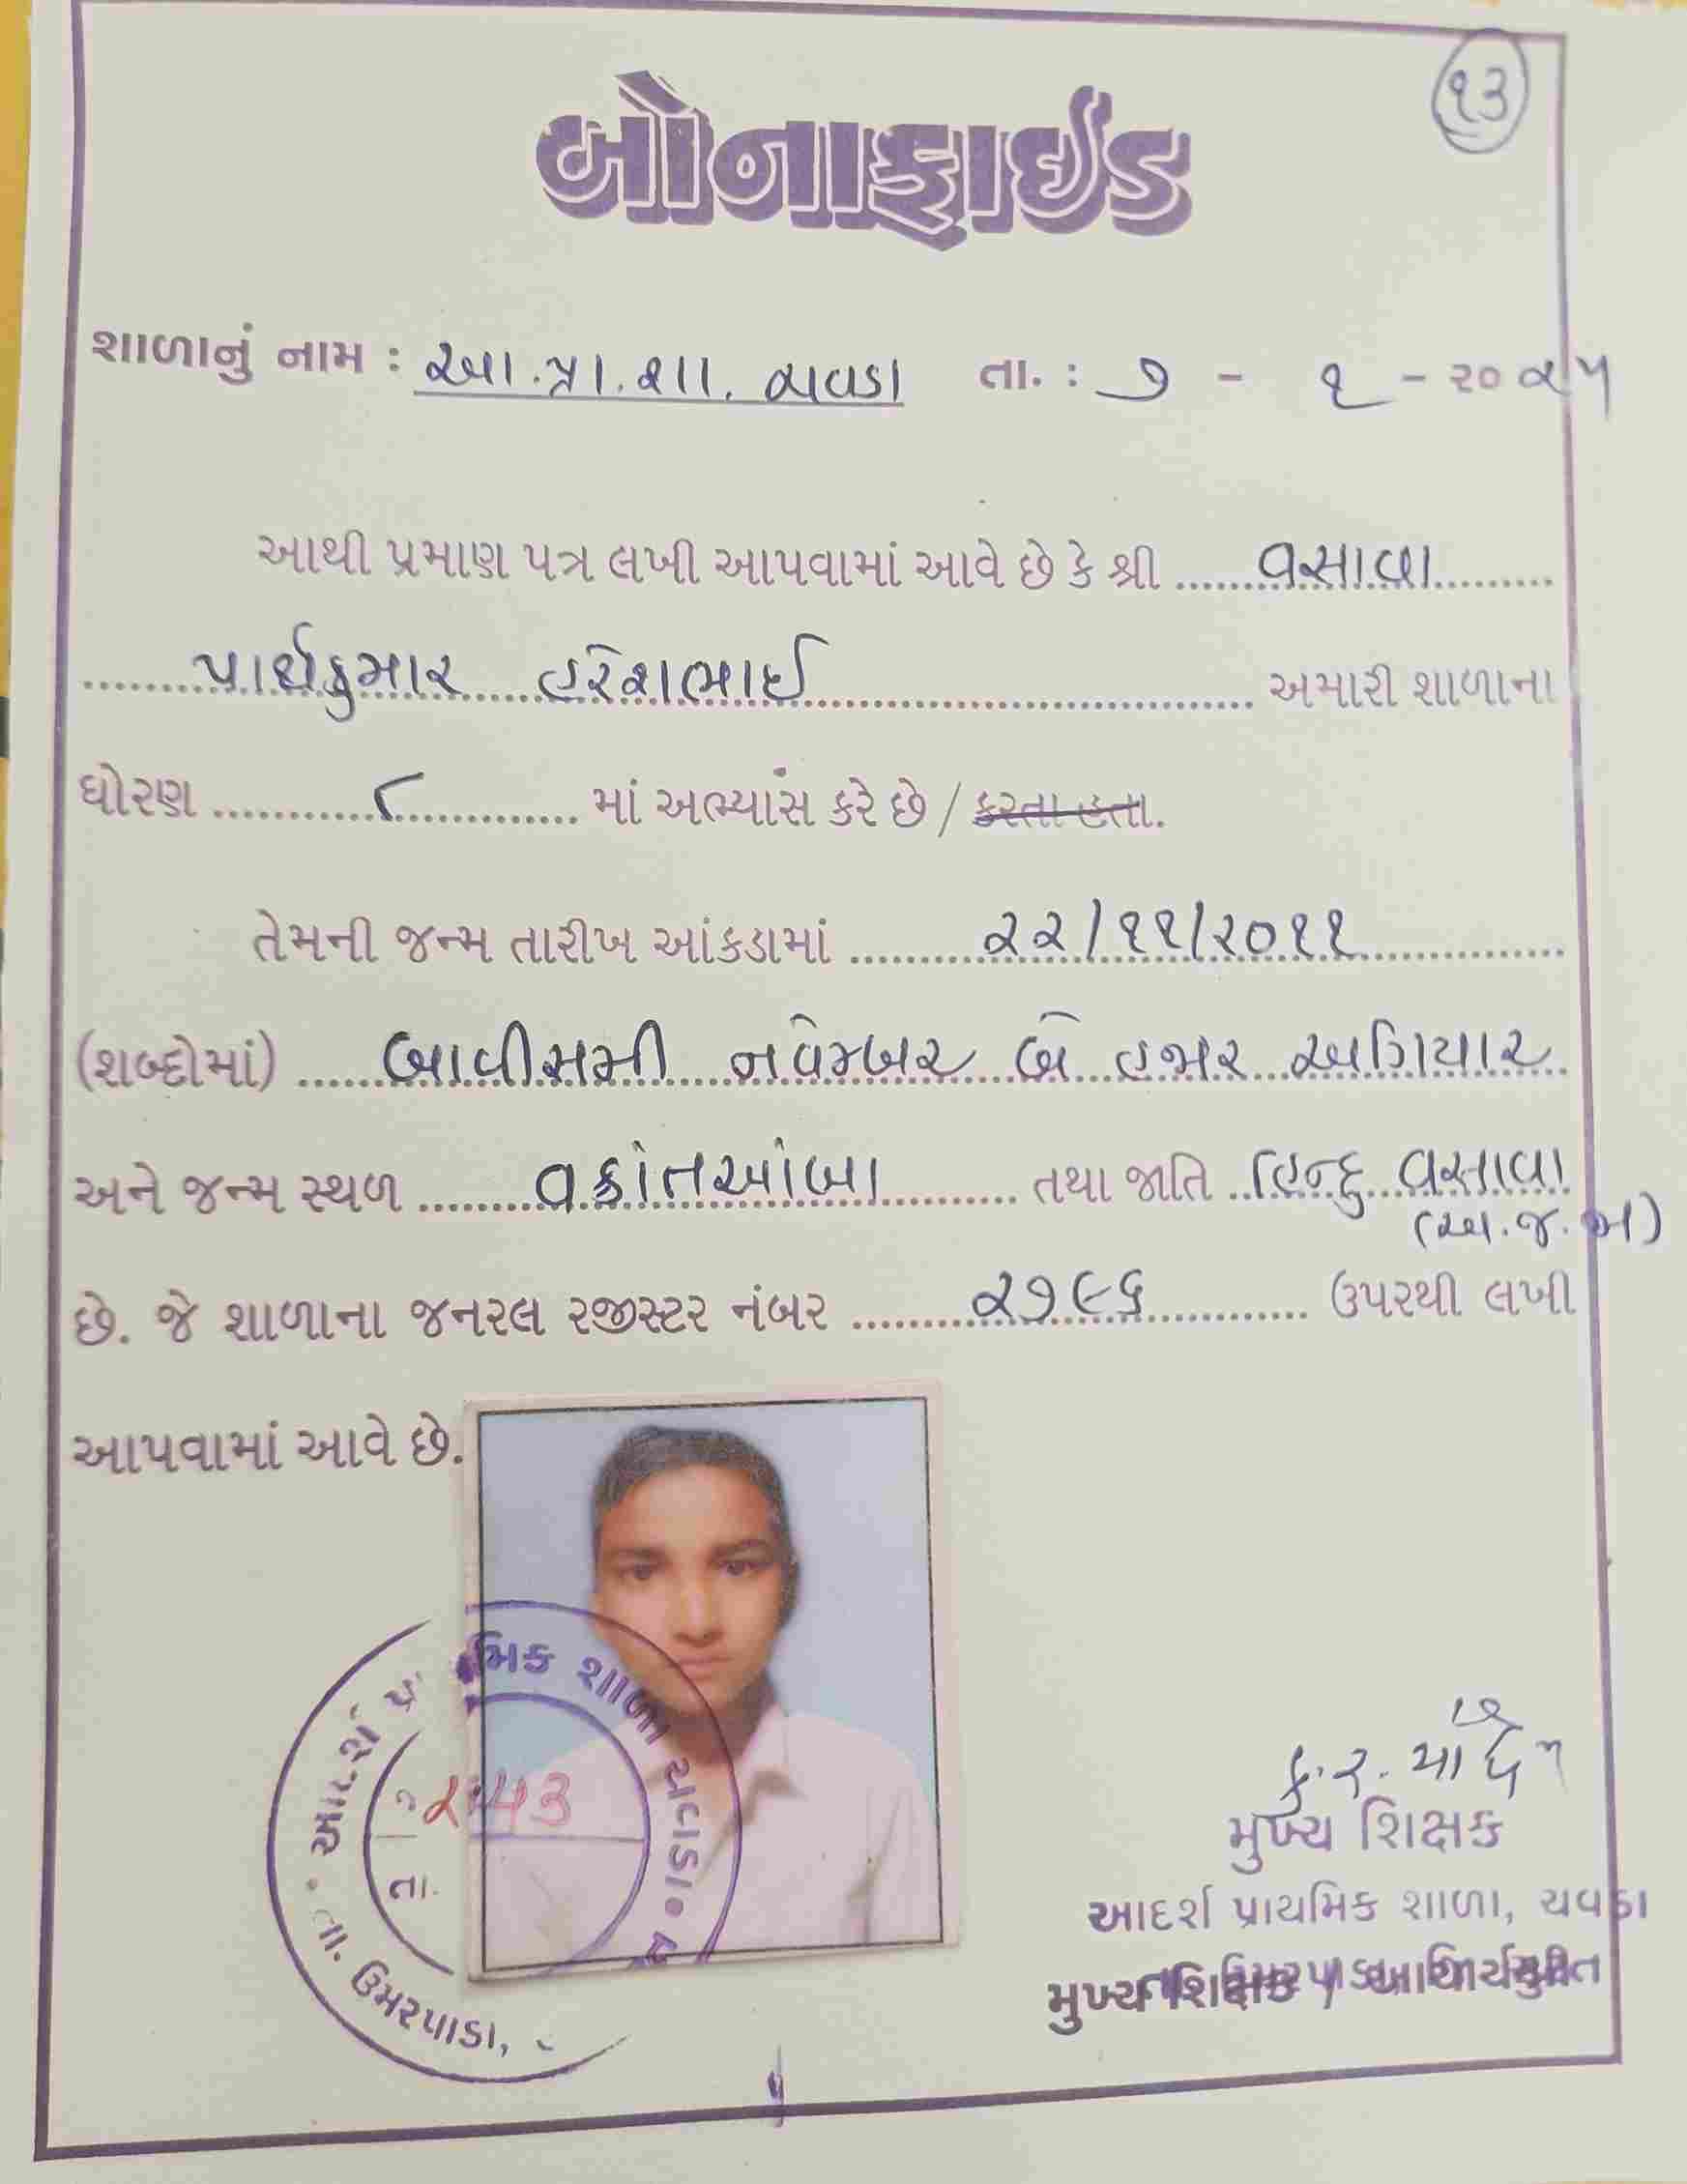 ૧૩
બોનાફાઈડ
શાળાનું નામ : આ.પ્રા.શા. ચવડા તા. : ૭ - ૧ - ૨૦૨૫
આથી પ્રમાણ પત્ર લખી આપવામાં આવે છે કે શ્રી વસાવા
પાર્થકુમાર હરેશભાઈ અમારી શાળાના
ધોરણ ૮ માં અભ્યાસ કરે છે / કરતા હતા.
તેમની જન્મ તારીખ આંકડામાં ૨૨/૧૧/૨૦૧૧
(શબ્દોમાં) બાવીસમી નવેમ્બર બે હજાર અગિયાર
અને જન્મ સ્થળ તથા જાતિ હિન્દુ વસાવા
(અ.જ.જા)
છે. જે શાળાના જનરલ રજીસ્ટર નંબર ૨૭૯૬ ઉપરથી લખી
આપવામાં આવે છે.
મિક શાળા ચવડા
તા.
તા. ઉમરપાડા,
મુખ્ય શિક્ષક
આદર્શ પ્રાથમિક શાળા, ચવડા
મુખ્ય શિક્ષક / આચાર્યશ્રી